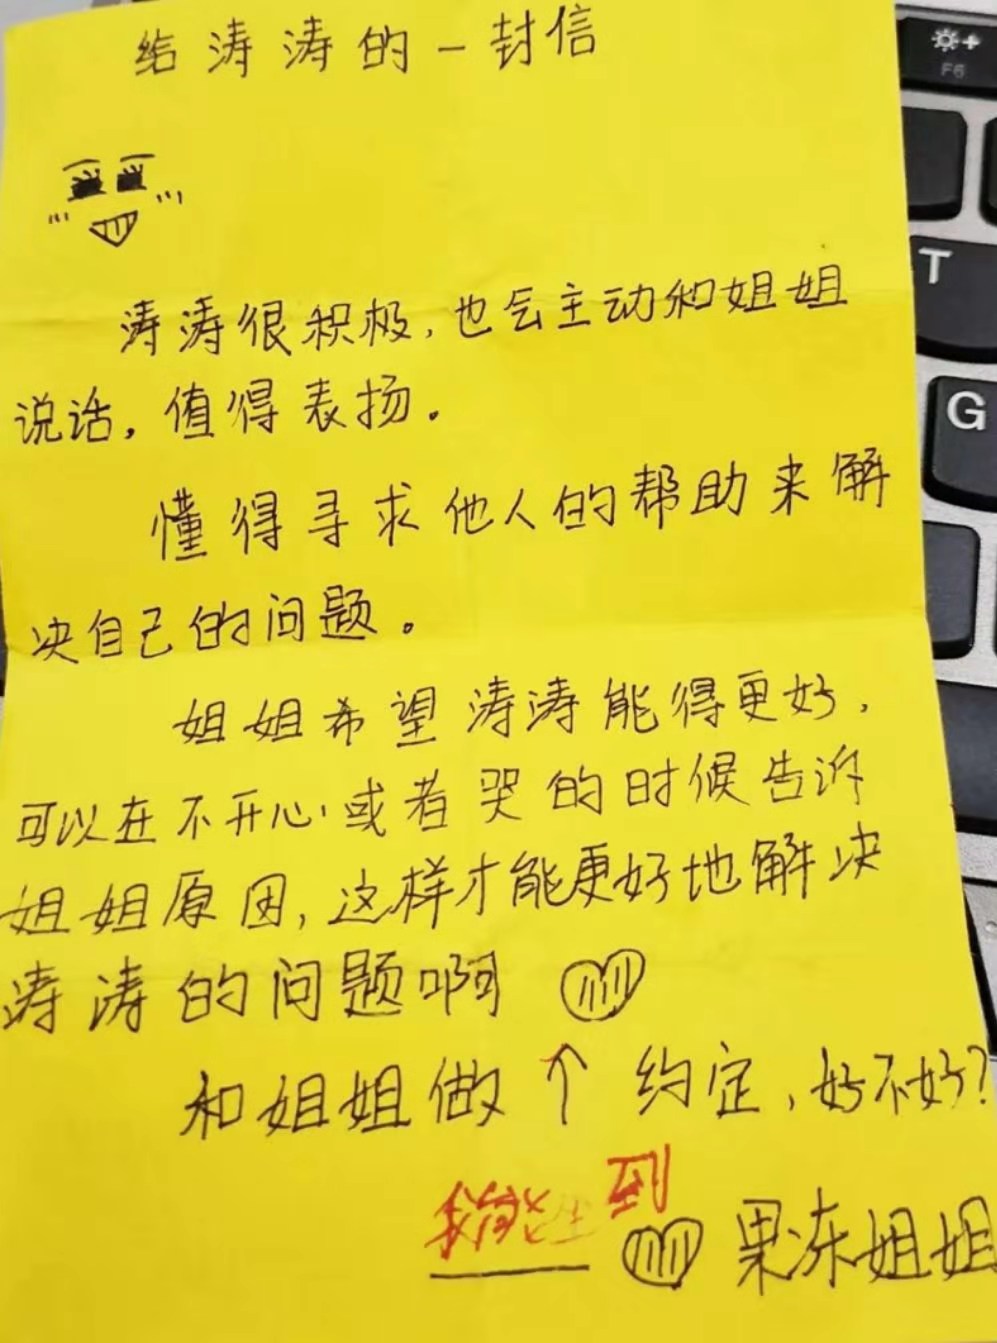 给涛涛的一封信
涛涛很积极,也会主动和姐姐
说话,值得表扬。
懂得寻求他人的帮助来解
决自己的问题。
姐姐希望涛涛能得更好,
可以在不开心或者哭的时候告诉
姐姐原因,这样才能更好地解决
涛涛的问题啊
和姐姐做个约定,好不好?
我能 到
果冻姐姐
F6
T
G